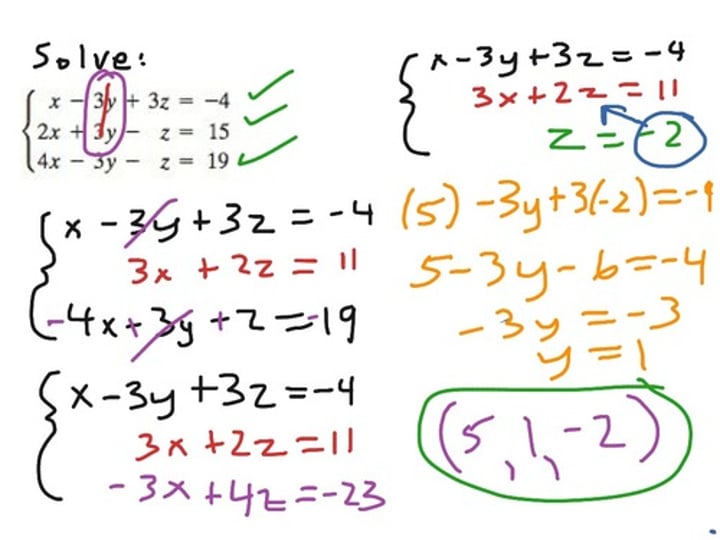 Solve:
x - 3y + 3z = -4
2x + 3y - z = 15
4x - 3y - z = 19
x - 3y + 3z = -4
3x + 2z = 11
-4x + 3y + z = -19
x - 3y + 3z = -4
3x + 2z = 11
-3x + 4z = -23
x - 3y + 3z = -4
3x + 2z = 11
z = -2
(5) - 3y + 3(-2) = -4
5 - 3y - 6 = -4
-3y = -3
y = 1
(5, 1, -2)